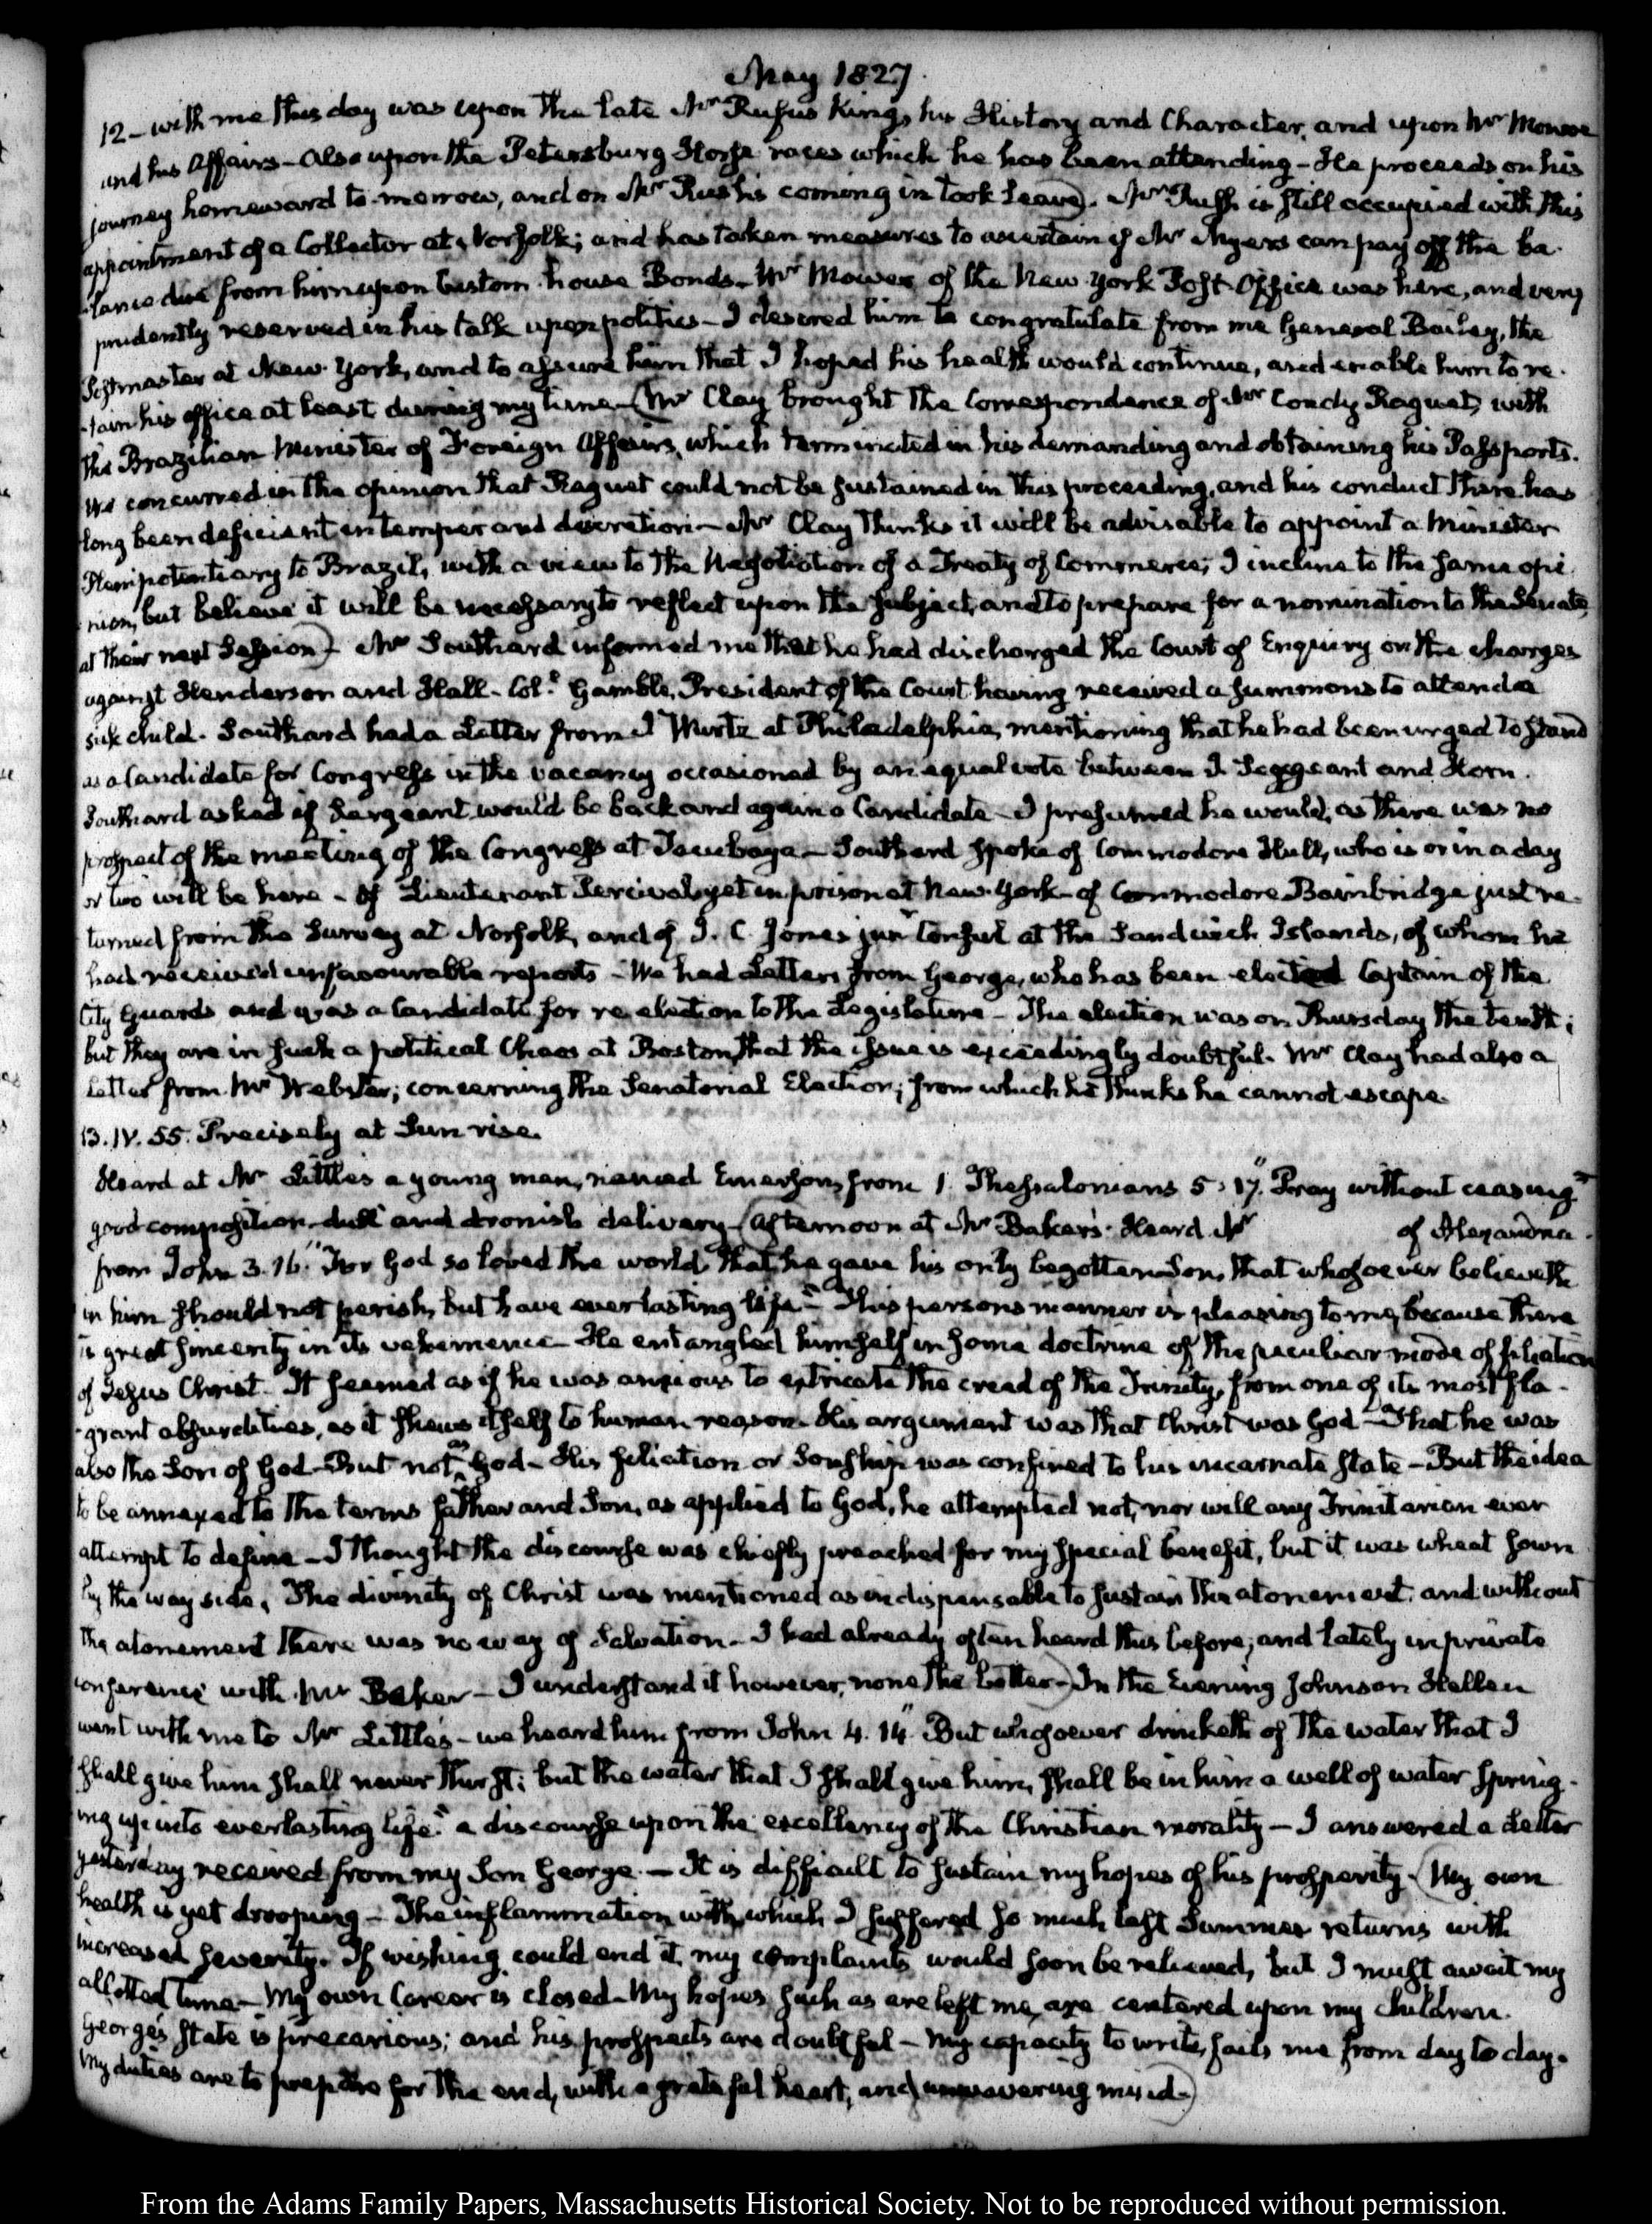 May 1827.
12 – with me this day was upon the late Mr Rufus King, his History and Character, and upon Mr Monroe
and his Affairs – Also upon the Petersburg Horse races which he has been attending – He proceeds on his
journey homeward to-morrow, and on Mr Rush's coming in took leave). Mr Rush is still occupied with this
appointment of a Collector at Norfolk; and has taken measures to ascertain if Mr Myers can pay off the ba-
-lance due from him upon Custom-house Bonds – Mr Mower of the New-York Post-Office was here, and very
prudently reserved in his talk upon politics – I desired him to congratulate from me General Bailey, the
Postmaster at New-York, and to assure him that I hoped his health would continue, and enable him to re-
-tain his office at least during my time – (Mr Clay brought the Correspondence of Mr Condy Raguet, with
the Brazilian Minister of Foreign Affairs, which terminated in his demanding and obtaining his Passports.
We concurred in the opinion that Raguet could not be sustained in this proceeding, and his conduct there has
long been deficient in temper and discretion – Mr Clay thinks it will be advisable to appoint a Minister
Plenipotentiary to Brazil, with a view to the Negotiation of a Treaty of Commerce; I incline to the same opi-
-nion, but believe it will be necessary to reflect upon the subject, and to prepare for a nomination to the Senate,
at their next Session) – Mr Southard informed me that he had discharged the Court of Enquiry on the charges
against Henderson and Hall – Col.l Gamble, President of the Court having received a summons to attend a
sick child. Southard had a Letter from Wurtz at Philadelphia, mentioning that he had been urged to stand
as a Candidate for Congress in the vacancy occasioned by an equal vote between J. Sergeant and Horn.
Southard asked if Sergeant would be back and again a Candidate – I presumed he would, as there was no
prospect of the meeting of the Congress at Tacubaya – Southard spoke of Commodore Hull, who is or in a day
or two will be here – of Lieutenant Percival yet in prison at New-York – of Commodore Bainbridge just re-
turned from the Survey at Norfolk, and of J. C. Jones junr Consul at the Sandwich Islands, of whom he
had received unfavourable reports – We had Letters from George, who has been elected Captain of the
City Guards and was a Candidate for re-election to the Legislature – The election was on Thursday the tenth;
but they are in such a political Chaos at Boston, that the issue is exceedingly doubtful. Mr Clay had also a
Letter from Mr Webster; concerning the Senatorial Election; from which he thinks he cannot escape.
13. IV. 55. Precisely at Sun rise.
Heard at Mr Little's a young man, named Emerson, from 1. Thessalonians 5. 17. "Pray without ceasing"
good composition – dull and dronish delivery – (Afternoon at Mr Baker's. Heard Mr of Alexandria.
from John 3. 16. "For God so loved the world, that he gave his only begotten Son, that whosoever believeth
in him should not perish, but have everlasting life" – This person's manner is pleasing to me, because there
is great sincerity in its vehemence – He entangled himself in some doctrine of the peculiar mode of filiation
of Jesus Christ. It seemed as if he was anxious to extricate the creed of the Trinity, from one of its most fla-
-grant absurdities, as it shews itself to human reason. His argument was that Christ was God – That he was
also the Son of God – But not as God – His filiation or Sonship was confined to his incarnate state – But the idea
to be annexed to the terms father and Son, as applied to God, he attempted not, nor will any Trinitarian ever
attempt to define – I thought the discourse was chiefly preached for my special benefit, but it was wheat sown
by the way side. The divinity of Christ was mentioned as indispensable to sustain the atonement, and without
the atonement there was no way of Salvation – I had already often heard this before, and lately in private
conference with Mr Baker – I understand it however, none the better –) In the Evening Johnson Hellen
went with me to Mr Little's – we heard him from John 4. 14. "But whosoever drinketh of the water that I
shall give him shall never thirst; but the water that I shall give him, shall be in him a well of water spring-
ing up into everlasting life." a discourse upon the excellency of the Christian morality – I answered a Letter
yesterday received from my Son George. – It is difficult to sustain my hopes of his prosperity. (My own
health is yet drooping – The inflammation with which I suffered so much last Summer returns with
increased severity. If wishing could end it, my complaints would soon be relieved, but I must await my
allotted time – My own Career is closed – My hopes such as are left me, are centered upon my children.
George's state is precarious; and his prospects are doubtful – My capacity to write, fails me from day to day.
My duties are to prepare for the end, with a grateful heart, and unwavering mind –)
From the Adams Family Papers, Massachusetts Historical Society. Not to be reproduced without permission.